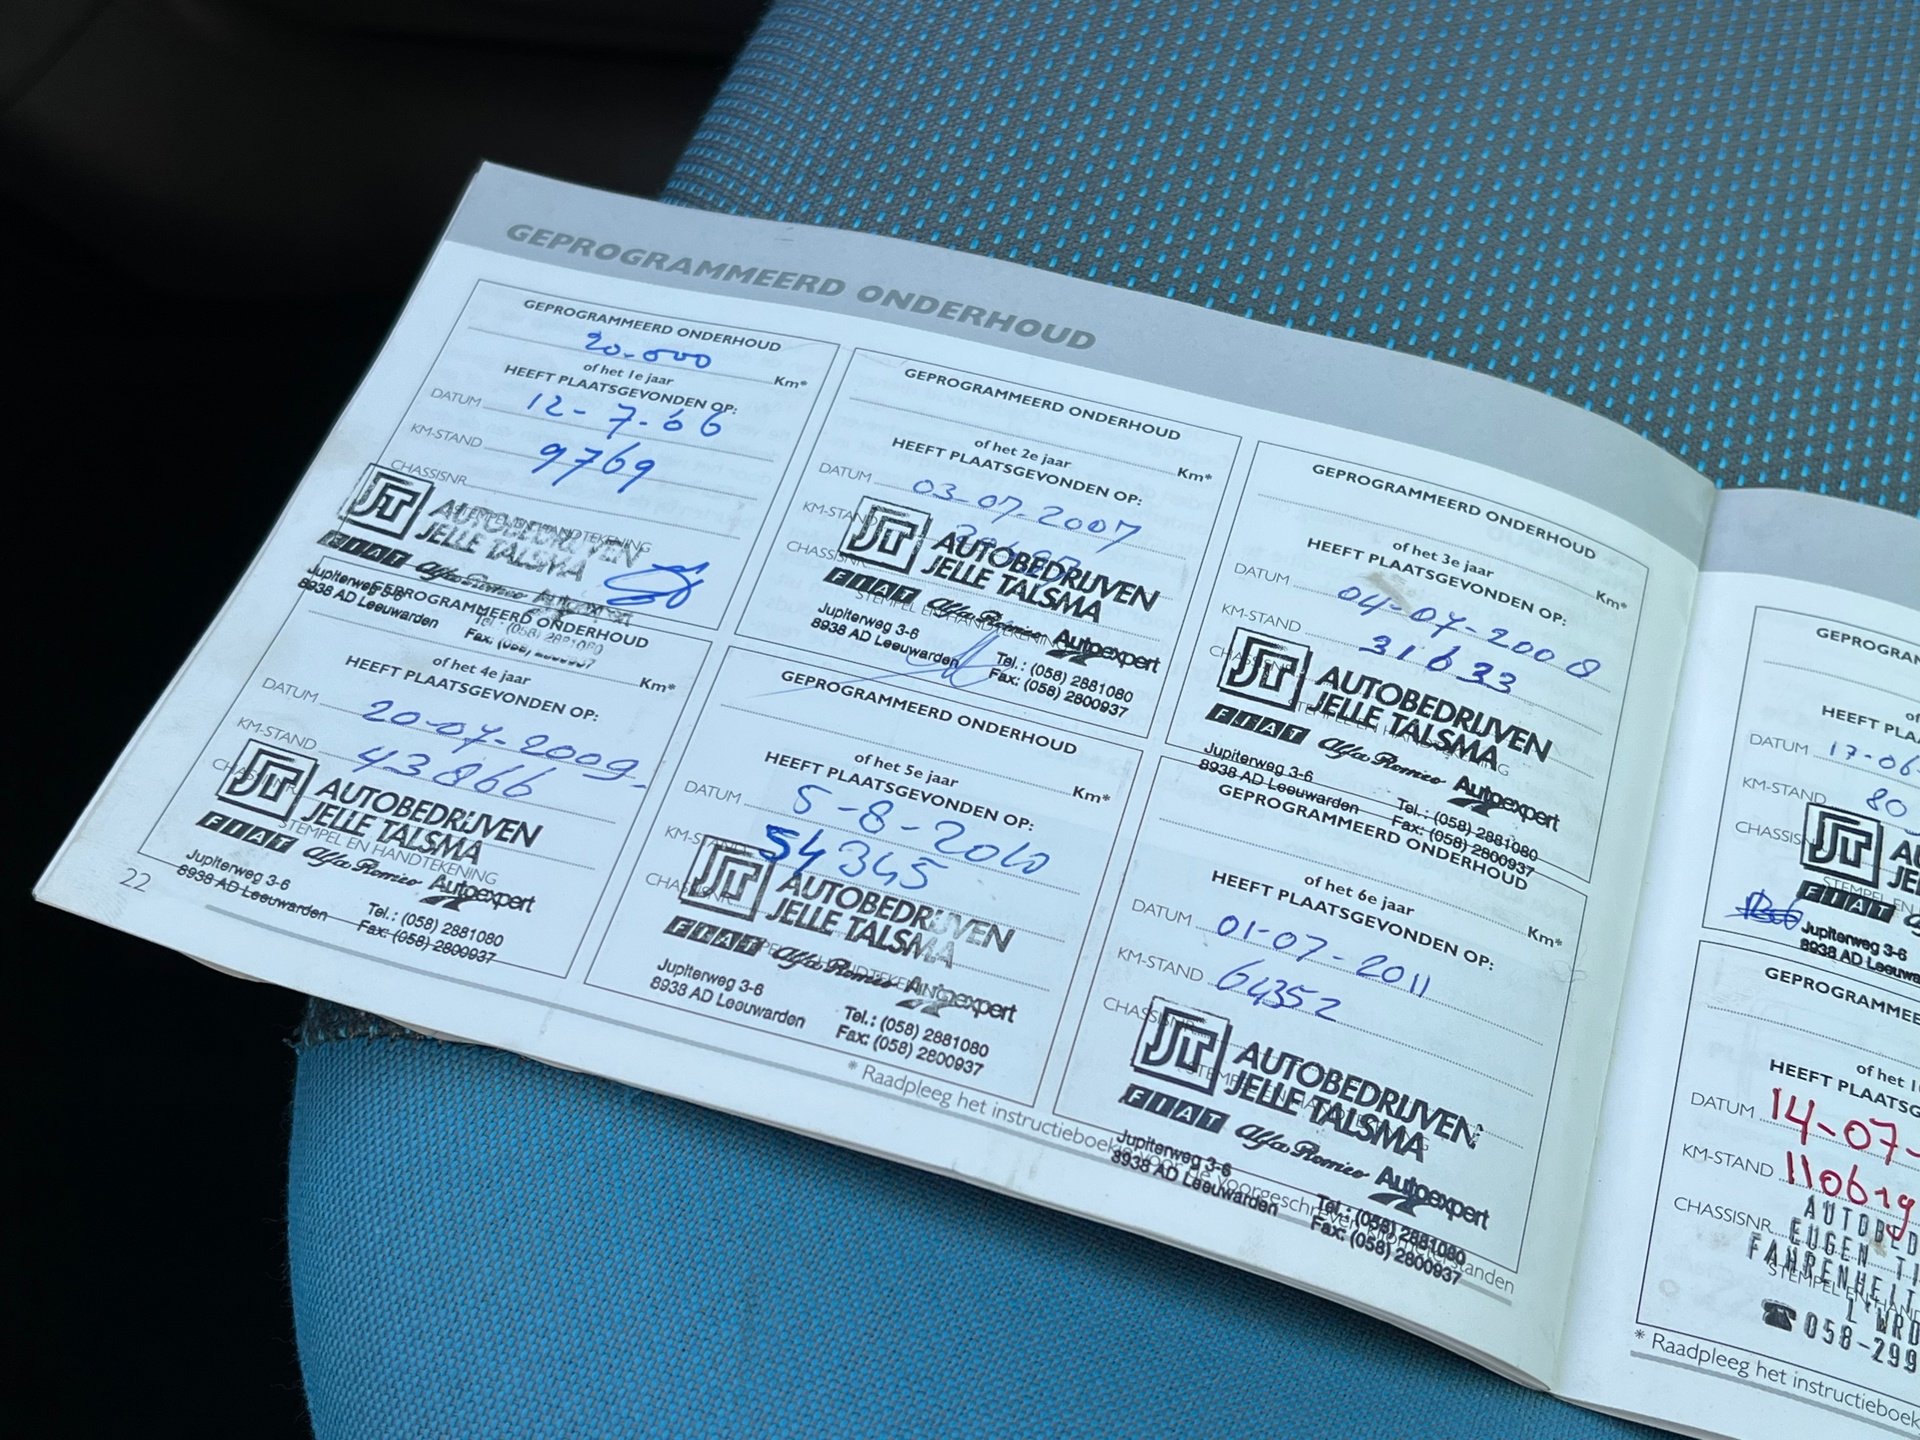 GEPROGRAMMEERD ONDERHOUD
GEPROGRAMMEERD ONDERHOUD
20.000
of het 1e jaar Km*
HEEFT PLAATSGEVONDEN OP:
DATUM 12-7-06
KM-STAND 9769
CHASSISNR
STEMPEL EN HANDTEKENING
JT AUTOBEDRIJVEN
JELLE TALSMA
FIAT Alfa Romeo Autoexpert
Jupiterweg 3-6
8938 AD Leeuwarden
Tel.: (058) 2881080
Fax: (058) 2800937
GEPROGRAMMEERD ONDERHOUD
of het 2e jaar Km*
HEEFT PLAATSGEVONDEN OP:
DATUM 03-07-2007
KM-STAND
CHASSISNR
STEMPEL EN HANDTEKENING
JT AUTOBEDRIJVEN
JELLE TALSMA
FIAT Alfa Romeo Autoexpert
Jupiterweg 3-6
8938 AD Leeuwarden
Tel.: (058) 2881080
Fax: (058) 2800937
GEPROGRAMMEERD ONDERHOUD
of het 3e jaar Km*
HEEFT PLAATSGEVONDEN OP:
DATUM 04-07-2008
KM-STAND 31633
CHASSISNR
STEMPEL EN HANDTEKENING
JT AUTOBEDRIJVEN
JELLE TALSMA
FIAT Alfa Romeo Autoexpert
Jupiterweg 3-6
8938 AD Leeuwarden
Tel.: (058) 2881080
Fax: (058) 2800937
GEPROGRAMMEERD ONDERHOUD
of het 4e jaar Km*
HEEFT PLAATSGEVONDEN OP:
DATUM 20-07-2009
KM-STAND 43866
CHASSISNR
STEMPEL EN HANDTEKENING
JT AUTOBEDRIJVEN
JELLE TALSMA
FIAT Alfa Romeo Autoexpert
Jupiterweg 3-6
8938 AD Leeuwarden
Tel.: (058) 2881080
Fax: (058) 2800937
GEPROGRAMMEERD ONDERHOUD
of het 5e jaar Km*
HEEFT PLAATSGEVONDEN OP:
DATUM 5-8-2010
KM-STAND 54345
CHASSISNR
JT AUTOBEDRIJVEN
JELLE TALSMA
FIAT Alfa Romeo Autoexpert
Jupiterweg 3-6
8938 AD Leeuwarden
Tel.: (058) 2881080
Fax: (058) 2800937
GEPROGRAMMEERD ONDERHOUD
of het 6e jaar Km*
HEEFT PLAATSGEVONDEN OP:
DATUM 01-07-2011
KM-STAND 64352
CHASSISNR
JT AUTOBEDRIJVEN
JELLE TALSMA
FIAT Alfa Romeo Autoexpert
Jupiterweg 3-6
8938 AD Leeuwarden
Tel.: (058) 2881080
Fax: (058) 2800937
* Raadpleeg het instructieboekje voor de voorgeschreven kilometerstanden
22
GEPROGRAM
HEEFT PLA
DATUM 17-06-
KM-STAND 80
CHASSISN
STEMPEL EN
FIAT
Jupiterweg 3-6
8938 AD Leeuwa
GEPROGRAMMEE
of het 1
HEEFT PLAATSG
DATUM 14-07-
KM-STAND 110619
CHASSISNR.
AUTOBED
EUGEN TI
FAHRENHEIT
STEMPEL EN HAND
L'WRD
☎ 058-299
* Raadpleeg het instructieboek